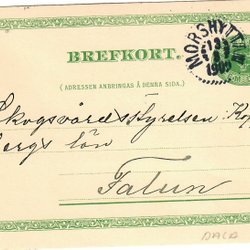 BREFKORT.
(ADRESSEN ANBRINGAS Å DENNA SIDA.)
MORSHYTTAN
Skogsvårdsstyrelsen Kop
bergs län
Falun
DALA